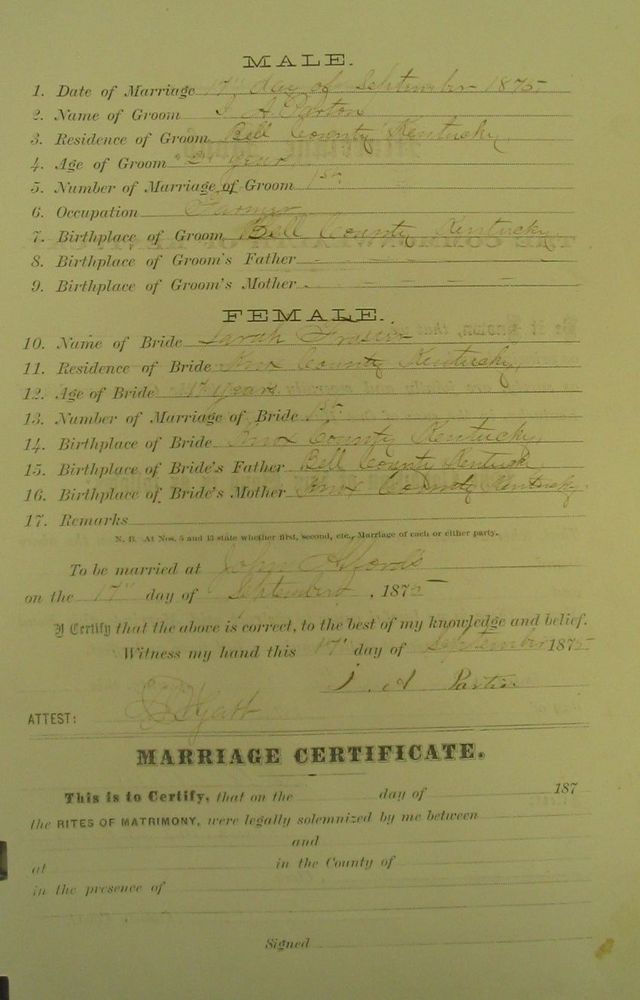 MALE.
1. Date of Marriage 17" day of September 1875
2. Name of Groom A Parton
3. Residence of Groom Bell County Kentucky
4. Age of Groom years
5. Number of Marriage of Groom 1st
6. Occupation Farmer
7. Birthplace of Groom Bell County Kentucky
8. Birthplace of Groom's Father
9. Birthplace of Groom's Mother
FEMALE.
10. Name of Bride Sarah
11. Residence of Bride Knox County Kentucky
12. Age of Bride years
13. Number of Marriage of Bride 1st
14. Birthplace of Bride Knox County Kentucky
15. Birthplace of Bride's Father Bell County Kentucky
16. Birthplace of Bride's Mother Knox County Kentucky
17. Remarks
N. B. At Nos. 5 and 13 state whether first, second, etc., Marriage of each or either party.
To be married at John Alford's
on the 17" day of September, 1875
I Certify that the above is correct, to the best of my knowledge and belief.
Witness my hand this 17" day of September 1875
J. A Partin
ATTEST:
MARRIAGE CERTIFICATE.
This is to Certify, that on the day of 187
the RITES OF MATRIMONY, were legally solemnized by me between
and
at in the County of
in the presence of
Signed